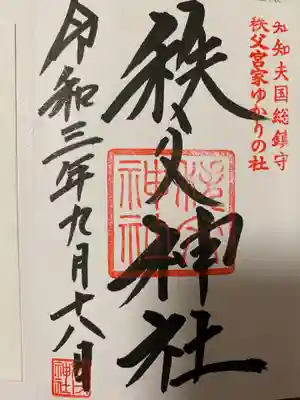 知知夫国総鎮守
秩父宮家ゆかりの社
秩父神社
令和三年九月十八日